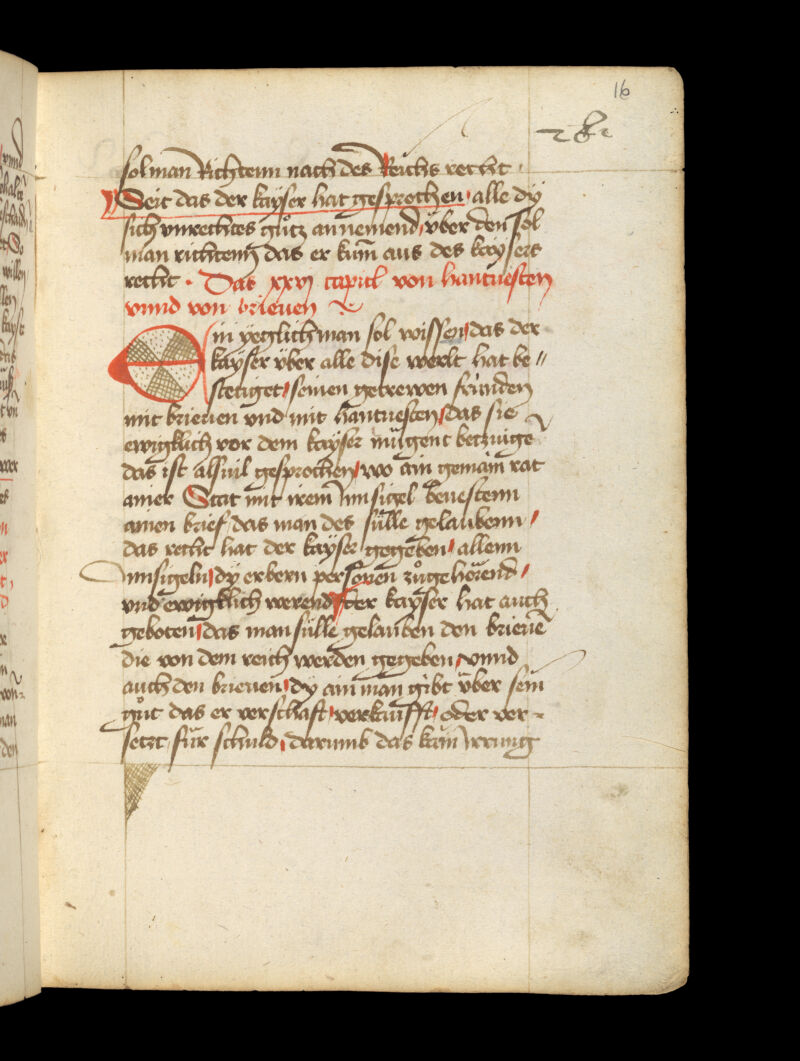 16
sol man Richtenn nach des Reichs recht
Seit das der kayser hat gesprochen alle dy
sich vnrechtes gůtz an nemend über den sol
man richtenn das er kum̄ aus des kaysers
recht · Das xxvj capitl von hantuesten
vnnd von brieuen
Ein yeglich man sol wissen das der
kayser über alle dise werlt hat be„
stetiget seinen getrewen fründen
mit brieuen vnd mit hantuesten das sie
ewigklich vor dem kayser mügent betzuige
das ist alsuil gesprochen wo ain gemain rat
ainer Stat mit irem Innsigel beuestenn
ainen brief das man des sülle gelaubenn
das recht hat der kayser gegeben allenn
Innsigeln dy erbern personen zůgehörend
vnd ewigklich werend der kayser hat auch
geboten das man sülle gelauben den brieuē
die von dem reich werden gegeben vnnd
auch den brieuen dy ain man gibt über sein
gůt das er verschaft verkaufft oder ver-
setzt für schuld darumb das kain irrung